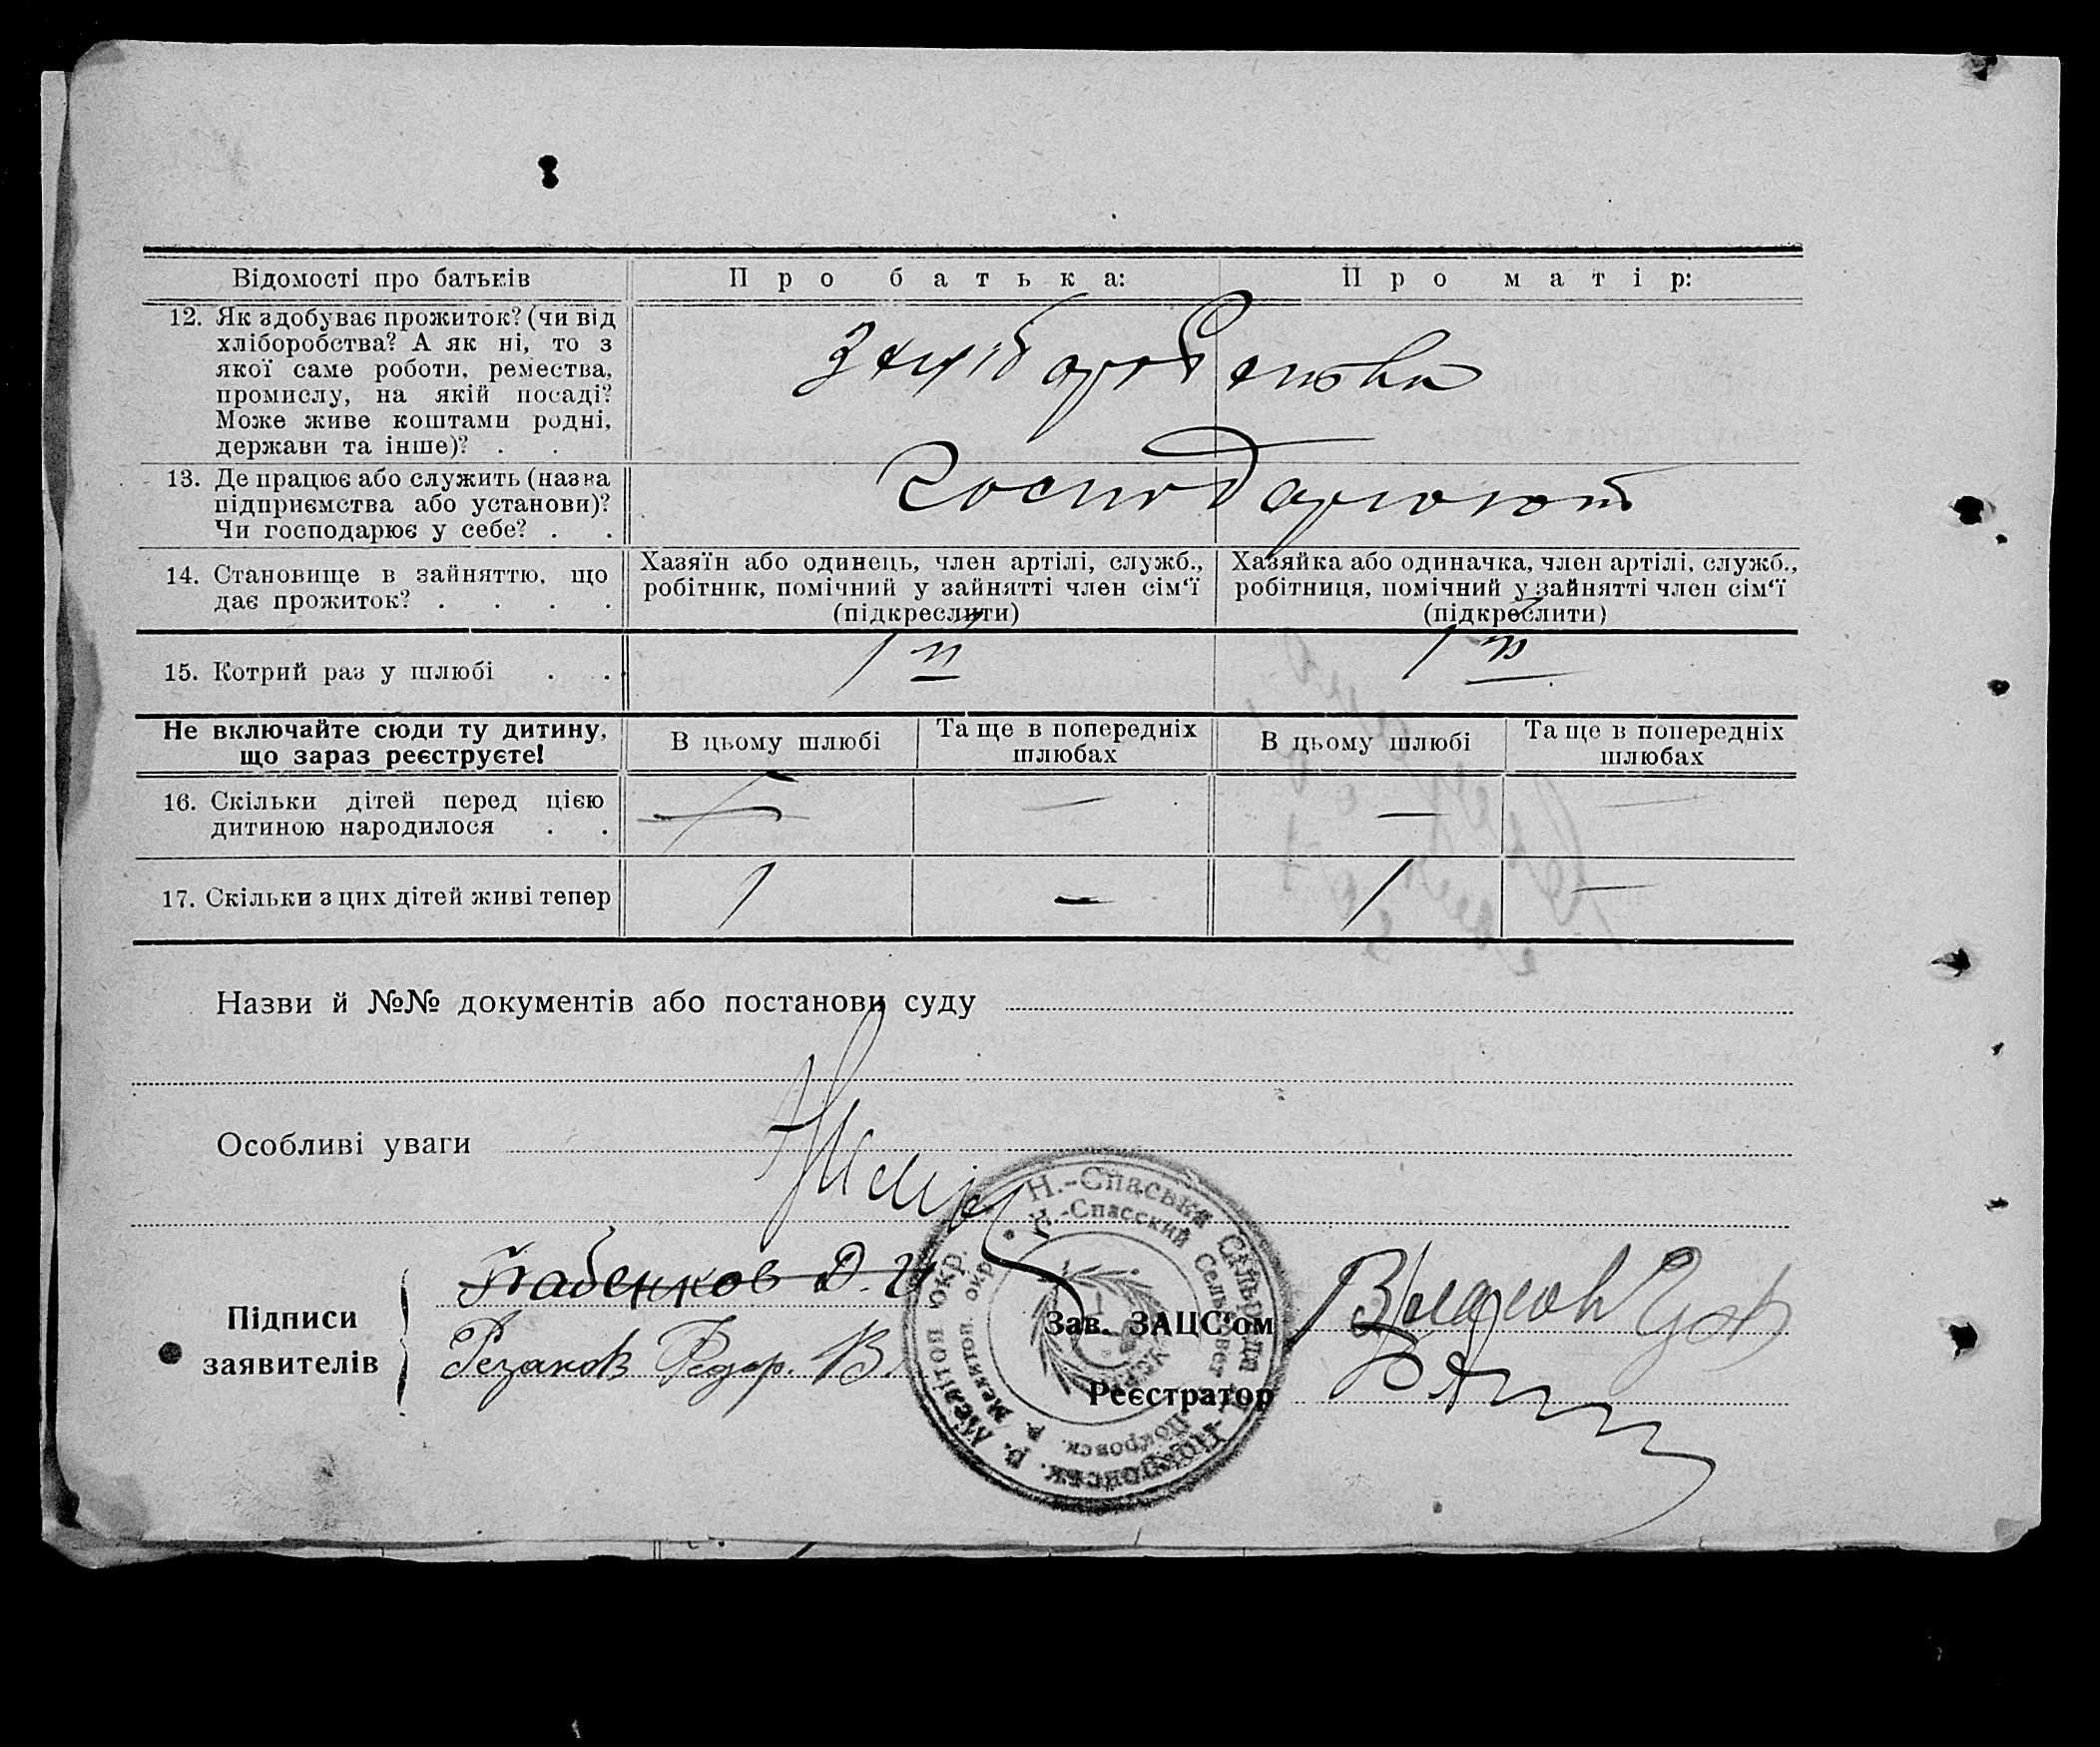 Відомості про батьків
Про батька:
Про матір:
12. Як здобуває прожиток? (чи від
хліборобства? А як ні, то з
якої саме роботи, ремества,
промислу, на якій посаді?
Може живе коштами родні,
держави та інше)? . .
З хліборобства
13. Де працює або служить (назва
підприємства або установи)?
Чи господарює у себе? . .
Господарюють
14. Становище в зайняттю, що
дає прожиток? . . . .
Хазяїн або одинець, член артілі, служб.,
робітник, помічний у зайнятті член сім'ї
(підкреслити)
Хазяйка або одиначка, член артілі, служб.,
робітниця, помічний у зайнятті член сім'ї
(підкреслити)
15. Котрий раз у шлюбі . .
1й
1й
Не включайте сюди ту дитину,
що зараз реєструєте!
В цьому шлюбі
Та ще в попередніх
шлюбах
В цьому шлюбі
Та ще в попередніх
шлюбах
16. Скільки дітей перед цією
дитиною народилося . .
— — —
17. Скільки з цих дітей живі тепер
1 — 1 —
Назви й №№ документів або постанови суду
Особливі уваги
Н.-Спаська Сільрада Н.-Покровськ. р. Мелітоп. окр.
Н.-Спасский Сельсовет Н.-Покровск. р. Мелитоп. окр.
Підписи
заявителів
Бабенков Д. И
Резаков Федор. В.
Зав. ЗАЦС'ом
Реєстратор